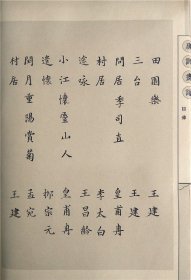 唐詩畫譜
目錄
田園樂 王建
三台 王建
問居季司直 皇甫冉
村居 李太白
送詠 王昌齡
小江懷靈山人 皇甫冉
遣懷 柳宗元
閑月重陽賞菊 孟宛
村居 王建